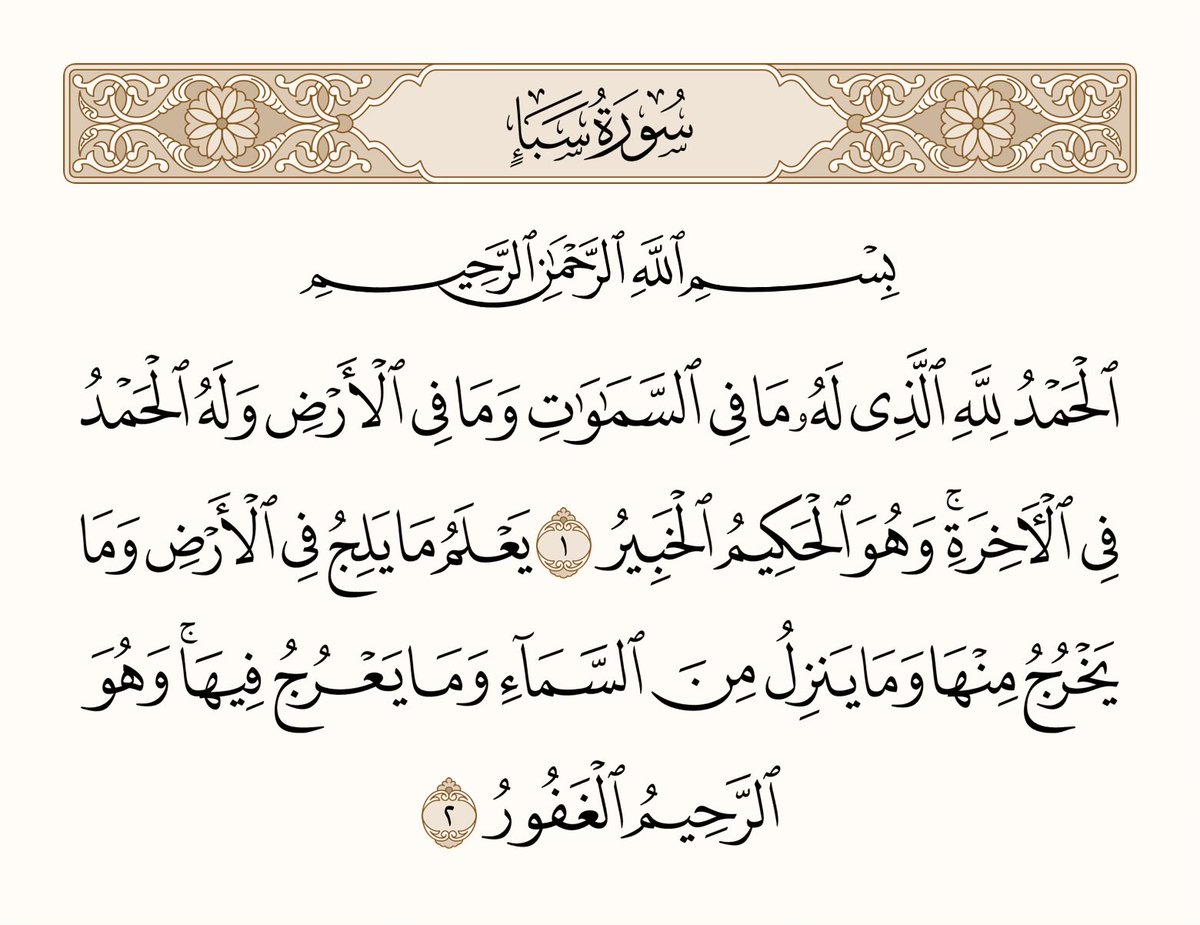 سُورَةُ سَبَإٍ
بِسْمِ ٱللَّهِ ٱلرَّحْمَٰنِ ٱلرَّحِيمِ
ٱلْحَمْدُ لِلَّهِ ٱلَّذِى لَهُۥ مَا فِى ٱلسَّمَٰوَٰتِ وَمَا فِى ٱلْأَرْضِ وَلَهُ ٱلْحَمْدُ
فِى ٱلْـَٔاخِرَةِۚ وَهُوَ ٱلْحَكِيمُ ٱلْخَبِيرُ ١ يَعْلَمُ مَا يَلِجُ فِى ٱلْأَرْضِ وَمَا
يَخْرُجُ مِنْهَا وَمَا يَنزِلُ مِنَ ٱلسَّمَآءِ وَمَا يَعْرُجُ فِيهَاۚ وَهُوَ
ٱلرَّحِيمُ ٱلْغَفُورُ ٢